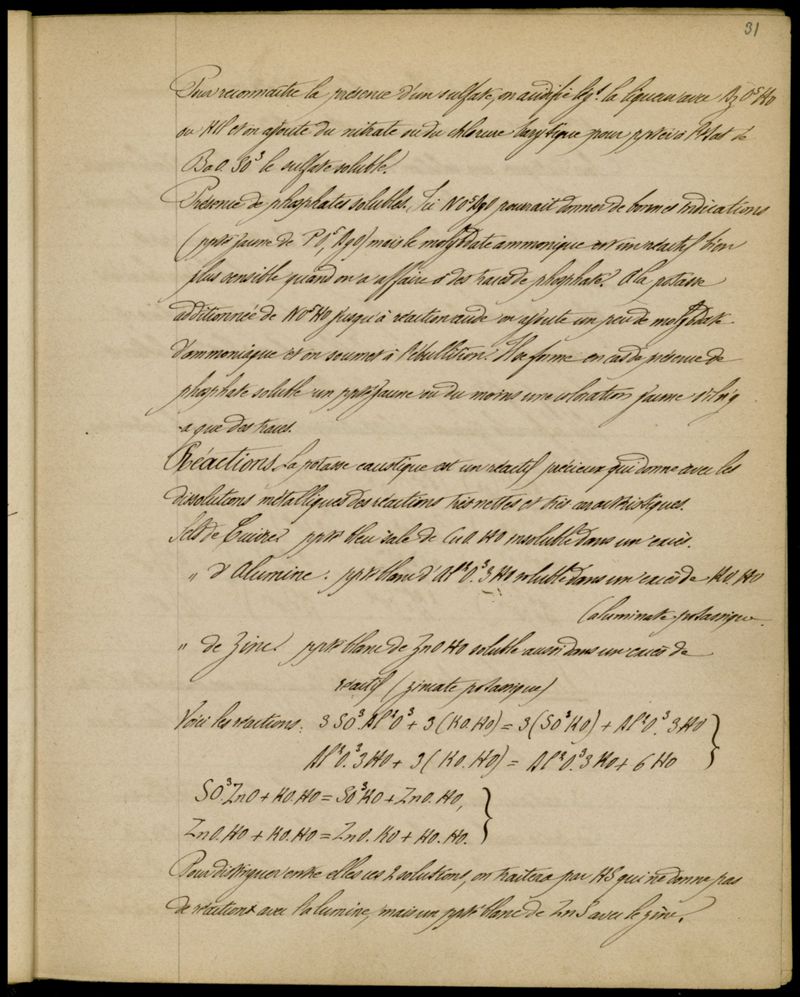 31
Pour reconnaître la présence d'un sulfate, on acidifie lgt. la liqueur avec Az O⁵ Ho
ou HCl et on ajoute du nitrate ou du chlorure barytique pour ppter à l'état de
BaO. SO³ le sulfate soluble.
Présence de phosphates solubles. Ici NO⁵AgO pourrait donner de bonnes indications
(ppté jaune de PO⁵, AgO) mais le molybdate ammonique est un réactif bien
plus sensible quand on a affaire à des traces de phosphate. A la potasse
additionnée de NO⁵HO jusqu'à réaction acide on ajoute un peu de molybdate
d'ammoniaque et on soumet à l'ébullition. Il se forme en cas de présence de
phosphate soluble un ppté jaune ou du moins une coloration jaune s'il n'y
a que des traces.
Réactions. La potasse caustique est un réactif précieux qui donne avec les
dissolutions métalliques des réactions très nettes et très caractéristiques.
Sels de Cuivre ppté bleu sale de CuO. HO insoluble dans un excès.
" d'Alumine. ppté blanc d'Al²O.³3HO soluble dans un excès de KO. HO
(aluminate potassique.
" de Zinc. ppté blanc de ZnO HO soluble aussi dans un excès de
réactif (zincate potassique)
Voici les réactions: 3SO³.Al²O³ + 3(KO.HO) = 3(SO³KO) + Al²O.³3HO
Al²O.³3HO + 3(KO.HO) = Al²O.³3KO + 6HO
SO³.ZnO + KO.HO = SO³KO + ZnO.HO,
ZnO.HO + KO.HO = ZnO.KO + HO.HO.
Pour distinguer entre elles ces 2 solutions, on traitera par HS qui ne donne pas
de réaction avec l'alumine, mais un ppté blanc de ZnS avec le zinc.